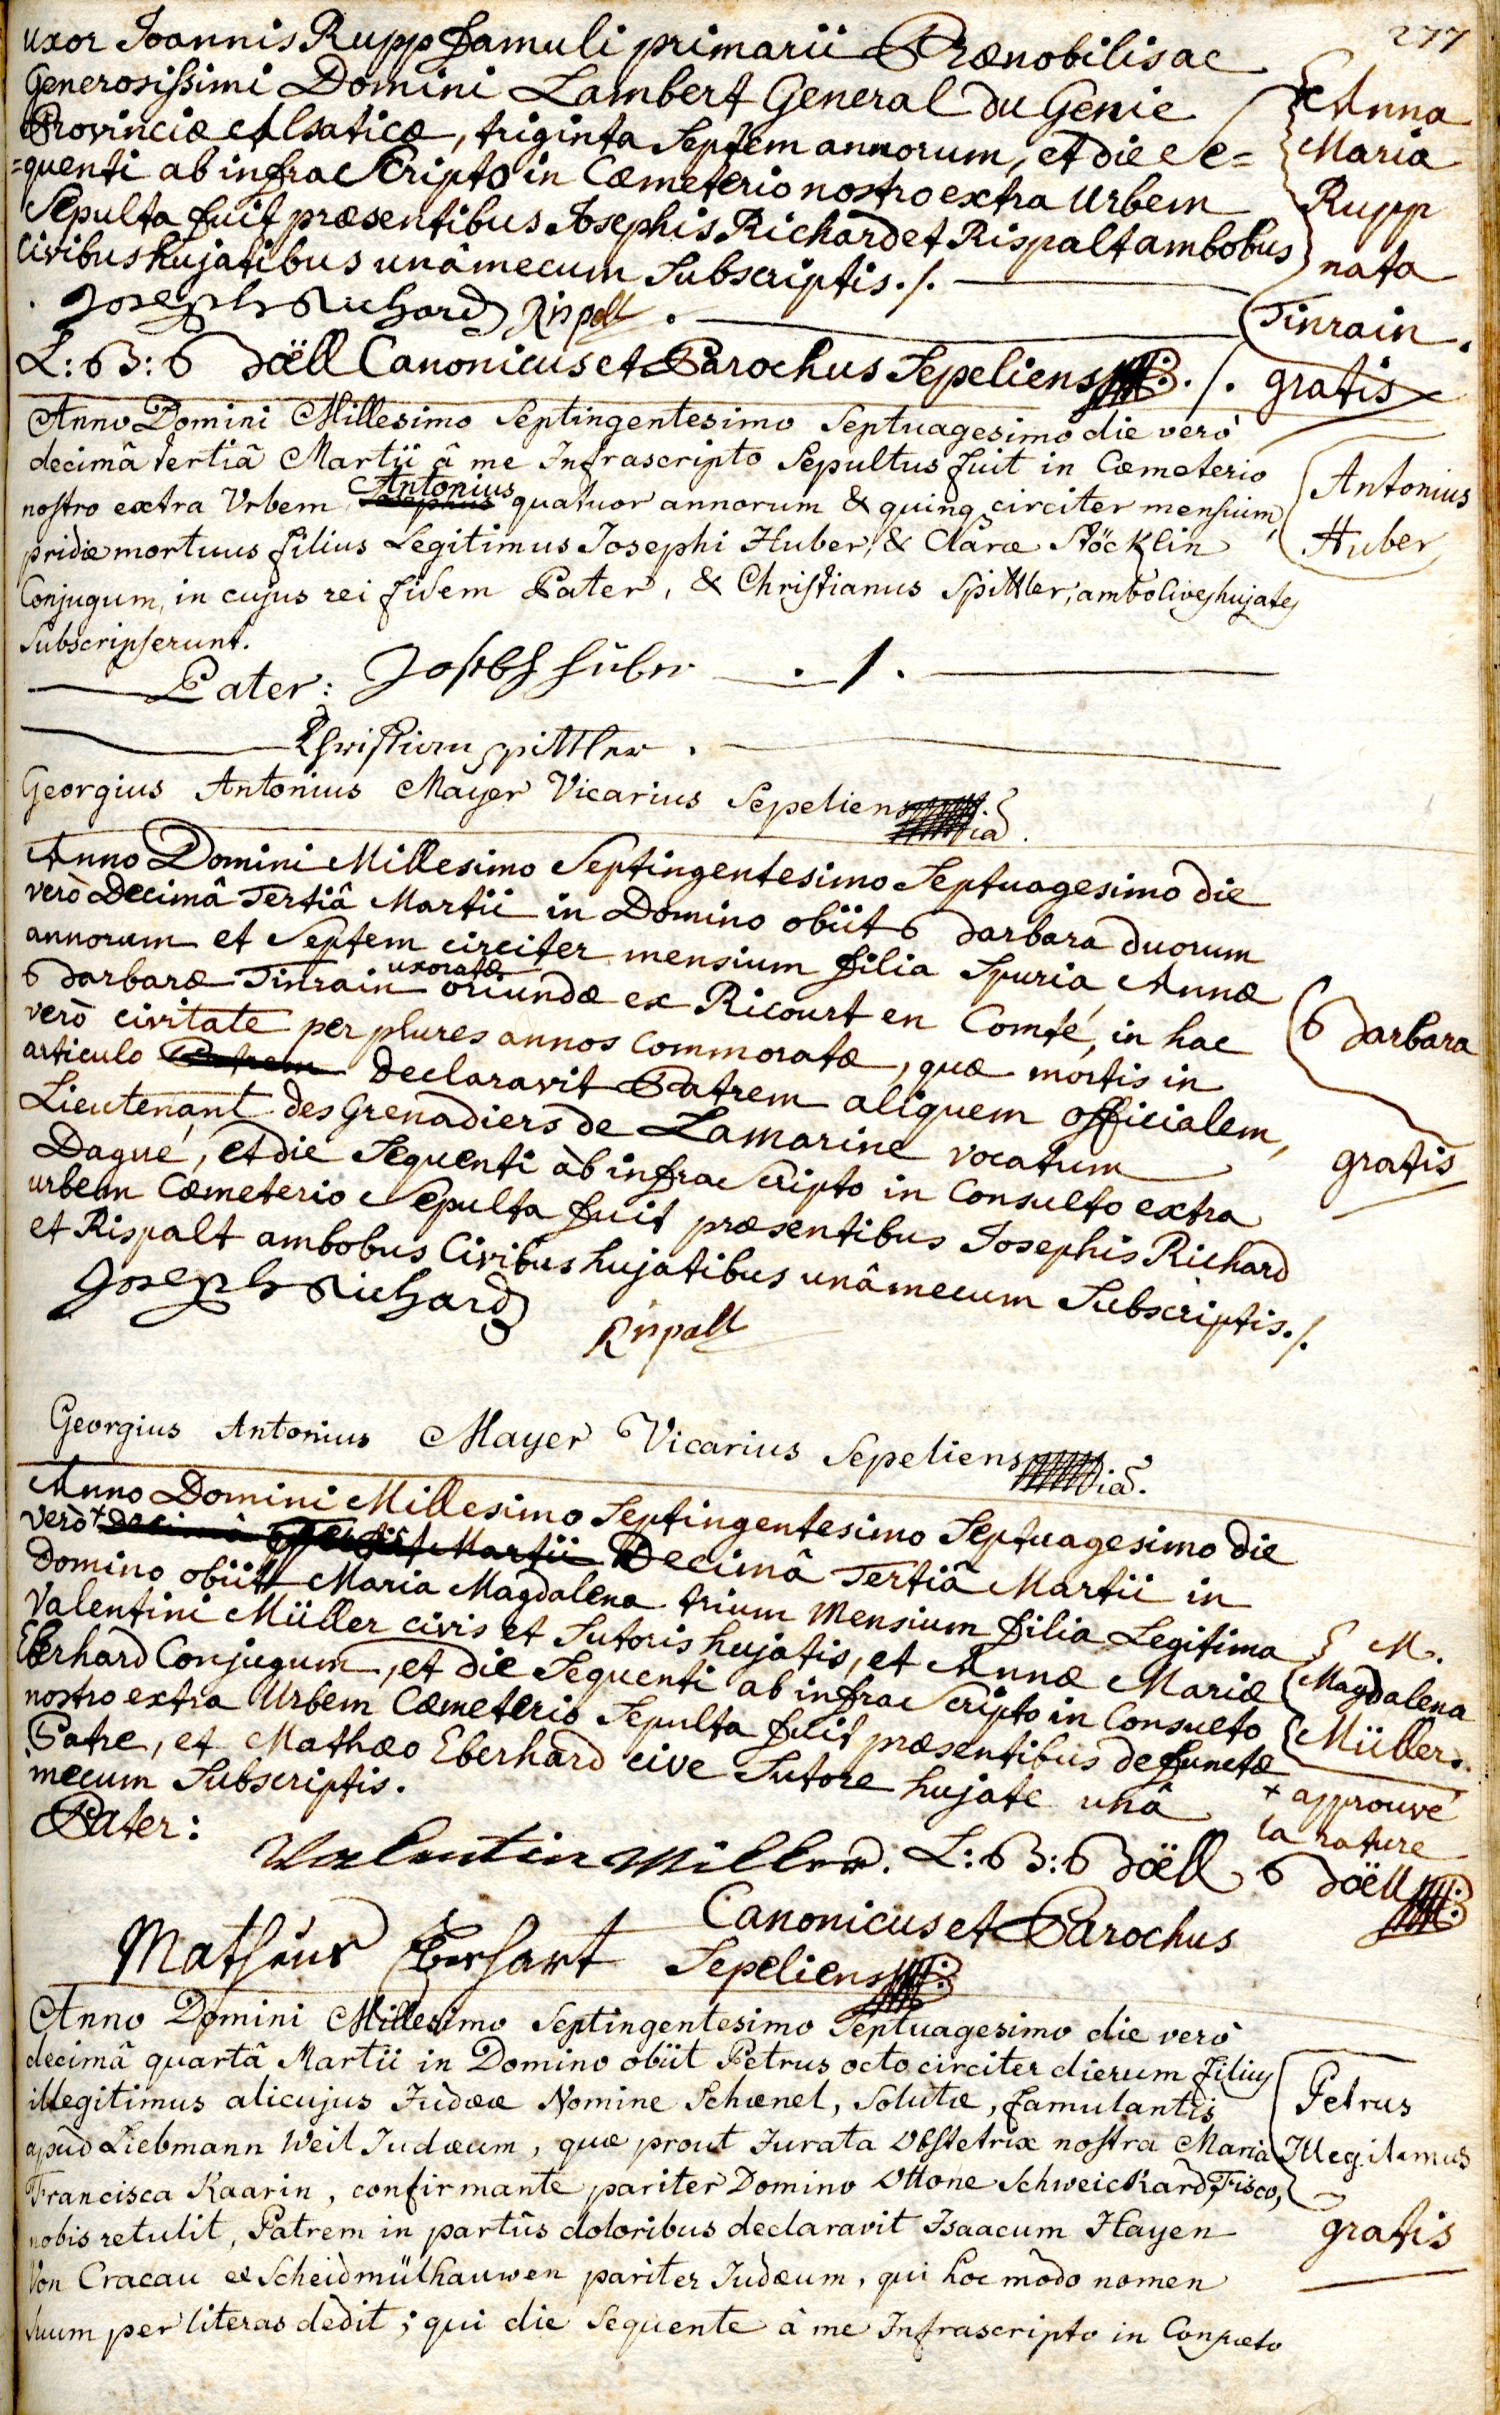 277
uxor Joannis Rupp famuli primarii Prænobilis ac
Generosissimi Domini Lambert General du Genie
Provinciæ Alsaticæ, triginta Septem annorum, et die Se=
=quenti ab infra Scripto in Cœmeterio nostro extra Urbem
Sepulta fuit præsentibus Josephis Richard et Rispalt ambobus
Civibus hujatibus unâ mecum Subscriptis./.
Anna
Maria
Rupp
nata
Tinrain.
gratis
Joseph Richard Rispalt.
L: B: Boëll Canonicus et Parochus Sepeliens ./.
Anno Domini Millesimo Septingentesimo Septuagesimo die verò
decimâ tertiâ Martii â me Infrascripto Sepultus fuit in Cœmeterio
nostro extra Urbem Antonius quatuor annorum & quinq circiter mensium,
pridie mortuus filius Legitimus Josephi Huber, & Claræ Stöcklin
Conjugum, in cujus rei fidem Pater, & Christianus Spittler, ambo Cives hujates
Subscripserunt.
Antonius
Huber
Pater: Joseph Huber ./.
Christian Spittler.
Georgius Antonius Mayer Vicarius Sepeliens
Anno Domini Millesimo Septingentesimo Septuagesimo die
verò Decimâ Tertiâ Martii in Domino obiit Barbara duorum
annorum et Septem circiter mensium filia Spuria Annæ
Barbaræ Tinrain uxoratæ oriundæ ex Ricourt en Comté, in hac
verò civitate per plures annos commoratæ, quæ mortis in
articulo Patrem declaravit Patrem aliquem officialem,
Lieutenant des Grenadiers de Lamarine vocatum
Dagué, et die Sequenti ab infra Scripto in Consueto extra
urbem Cœmeterio Sepulta fuit præsentibus Josephis Richard
et Rispalt ambobus Civibus hujatibus unâ mecum Subscriptis./.
Barbara
gratis
Joseph Richard
Rispalt
Georgius Antonius Mayer Vicarius Sepeliens
Anno Domini Millesimo Septingentesimo Septuagesimo die
verò + Decimâ Tertiâ Martii Decimâ Tertiâ Martii in
Domino obiit Maria Magdalena trium Mensium filia Legitima
Valentini Müller civis et Sutoris hujatis, et Annæ Mariæ
Eberhard Conjugum, et die Sequenti ab infra Scripto in Consueto
nostro extra Urbem Cœmeterio Sepulta fuit præsentibus defunctæ
Patre, et Mathæo Eberhard cive Sutore hujate unâ
mecum Subscriptis.
M.
Magdalena
Müller.
+ approuvé
la rature
Boëll
Pater:
Valentin Miller. L: B: Boëll
Canonicus et Parochus
Matheus Eberhart Sepeliens
Anno Domini Millesimo Septingentesimo Septuagesimo die verò
decimâ quartâ Martii in Domino obiit Petrus octo circiter dierum filius
illegitimus alicujus Judææ Nomine Schænel, Solutæ, famulantis
apud Liebmann Weil Judæum, quæ prout Jurata Obstetrix nostra Maria
Francisca Kaarin, confirmante pariter Domino Ottone Schweickard, Fisco,
nobis retulit, Patrem in partûs doloribus declaravit Isaacum Hayen
Von Cracau ex Scheidmülhauwen pariter Judæum, qui hoc modo nomen
suum per literas dedit; qui die Sequente â me Infrascripto in Consueto
Petrus
Illegitimus
gratis